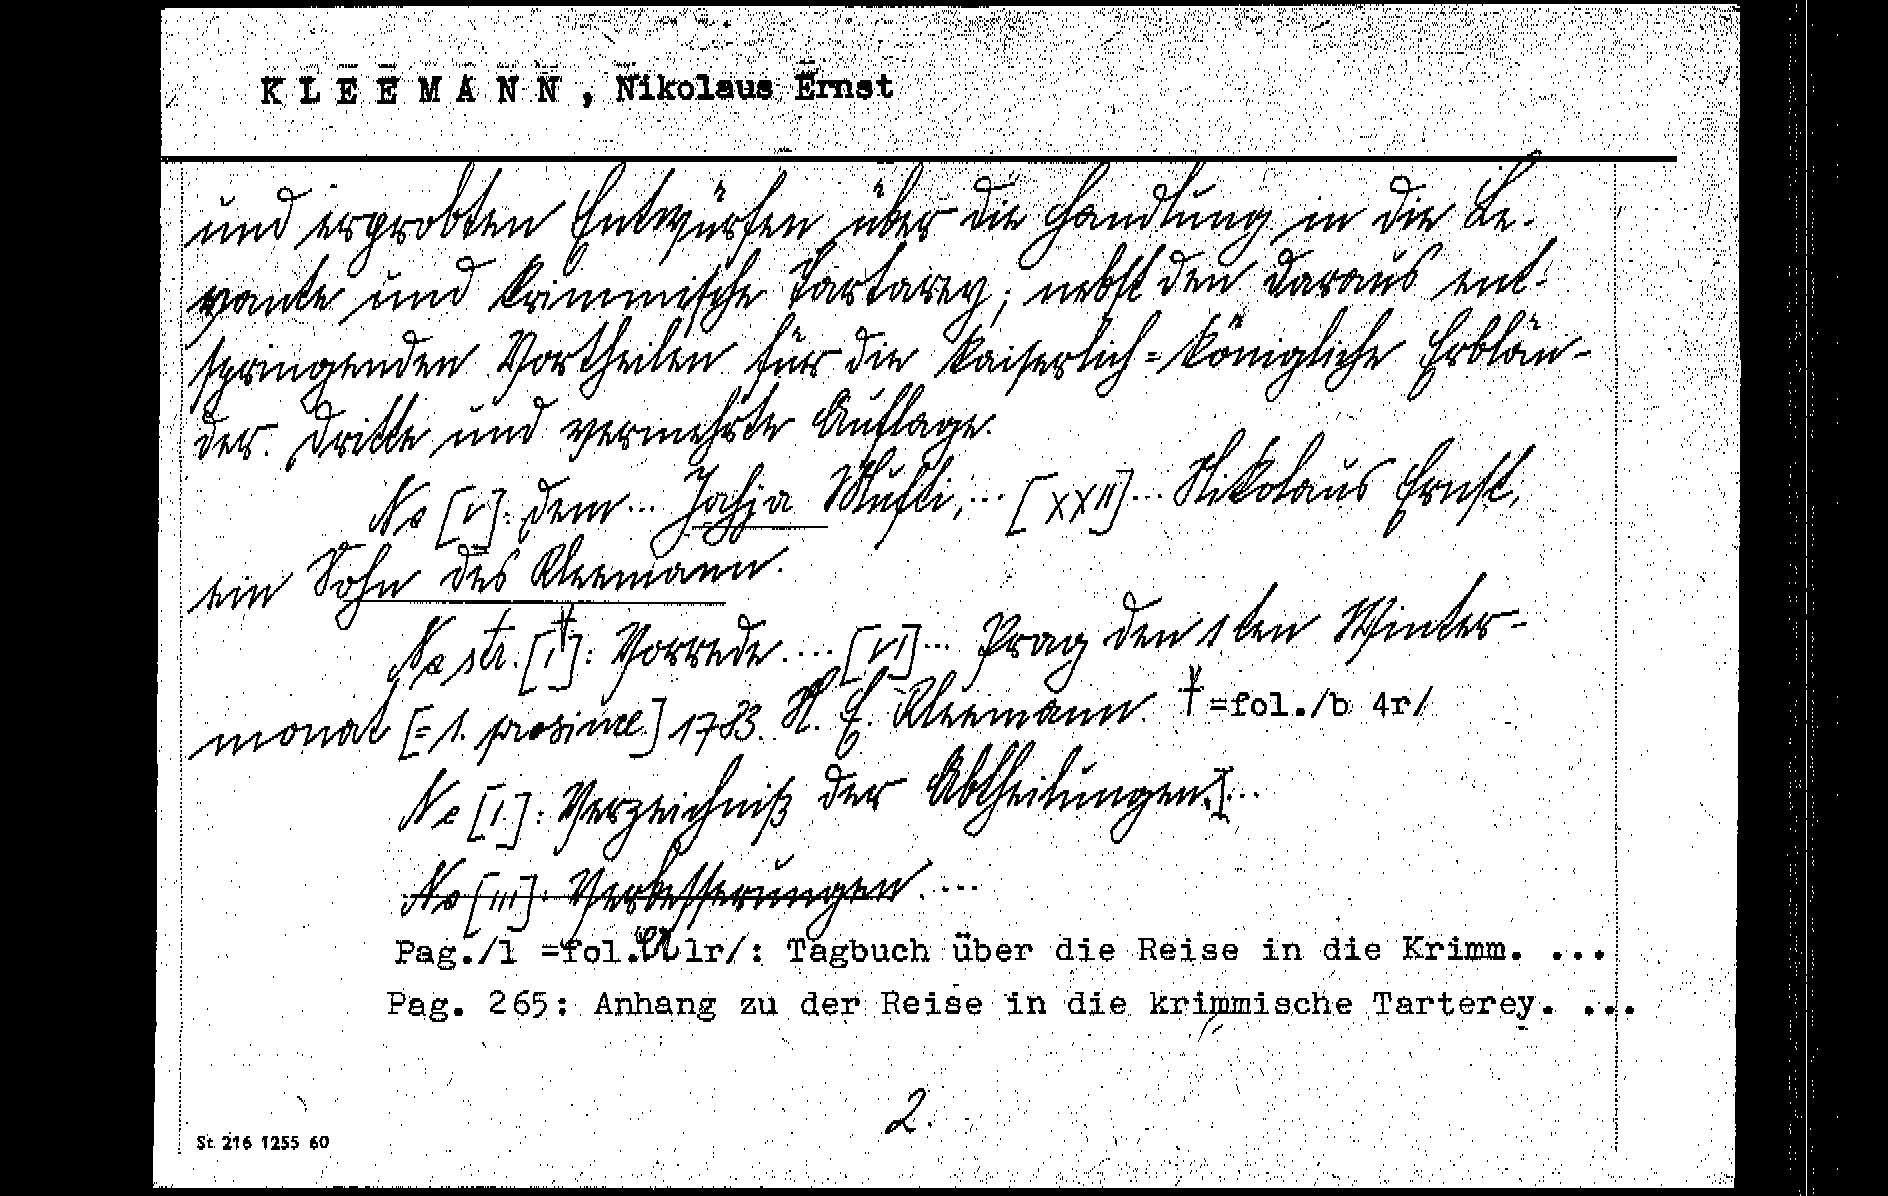 KLEEMANN, Nikolaus Ernst
und erprobten Entwürfen über die Handlung in die Le-
vante und krimmische Tartarey; nebst den daraus ent-
springenden Vortheilen für die kaiserlich=königliche Erblän-
der. Dritte und vermehrte Auflage.
Na [V]: Dem... Jahja Mufti,... [XXII]... Nikolaus Ernst,
ein Sohn des Kleemann.
Na str. [I]: Vorrede.... [VI]... Prag den 1ten Winter-
monat [= 1. prosince] 1783. N. E. Kleemann. =fol./b 4r/
Na [I]: Verzeichniß der Abtheilungen....
Na [III]: Verbesserungen....
Pag./1 =fol. A 1r/: Tagbuch über die Reise in die Krimm. ...
Pag. 265: Anhang zu der Reise in die krimmische Tarterey. ...
2.
St. 216 1255 60